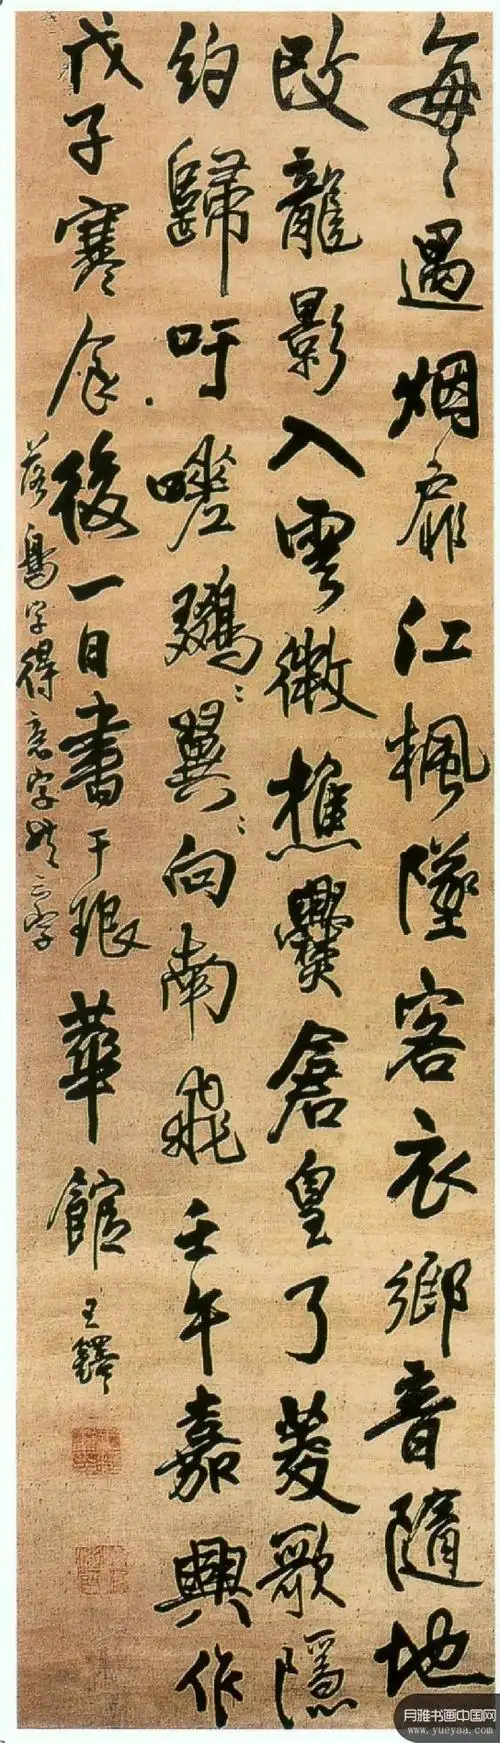 每〻遇烟扉江楓墜客衣鄉音隨地
改龍影入雲微樵爨倉皇了菱歌隱
約歸吁嗟鷄〻翼〻向南飛壬午嘉興作
戊子寒食後一日書于琅華館 王鐸
落鳥字得意字共三字
月雅书画中国网
www.yueyaa.com